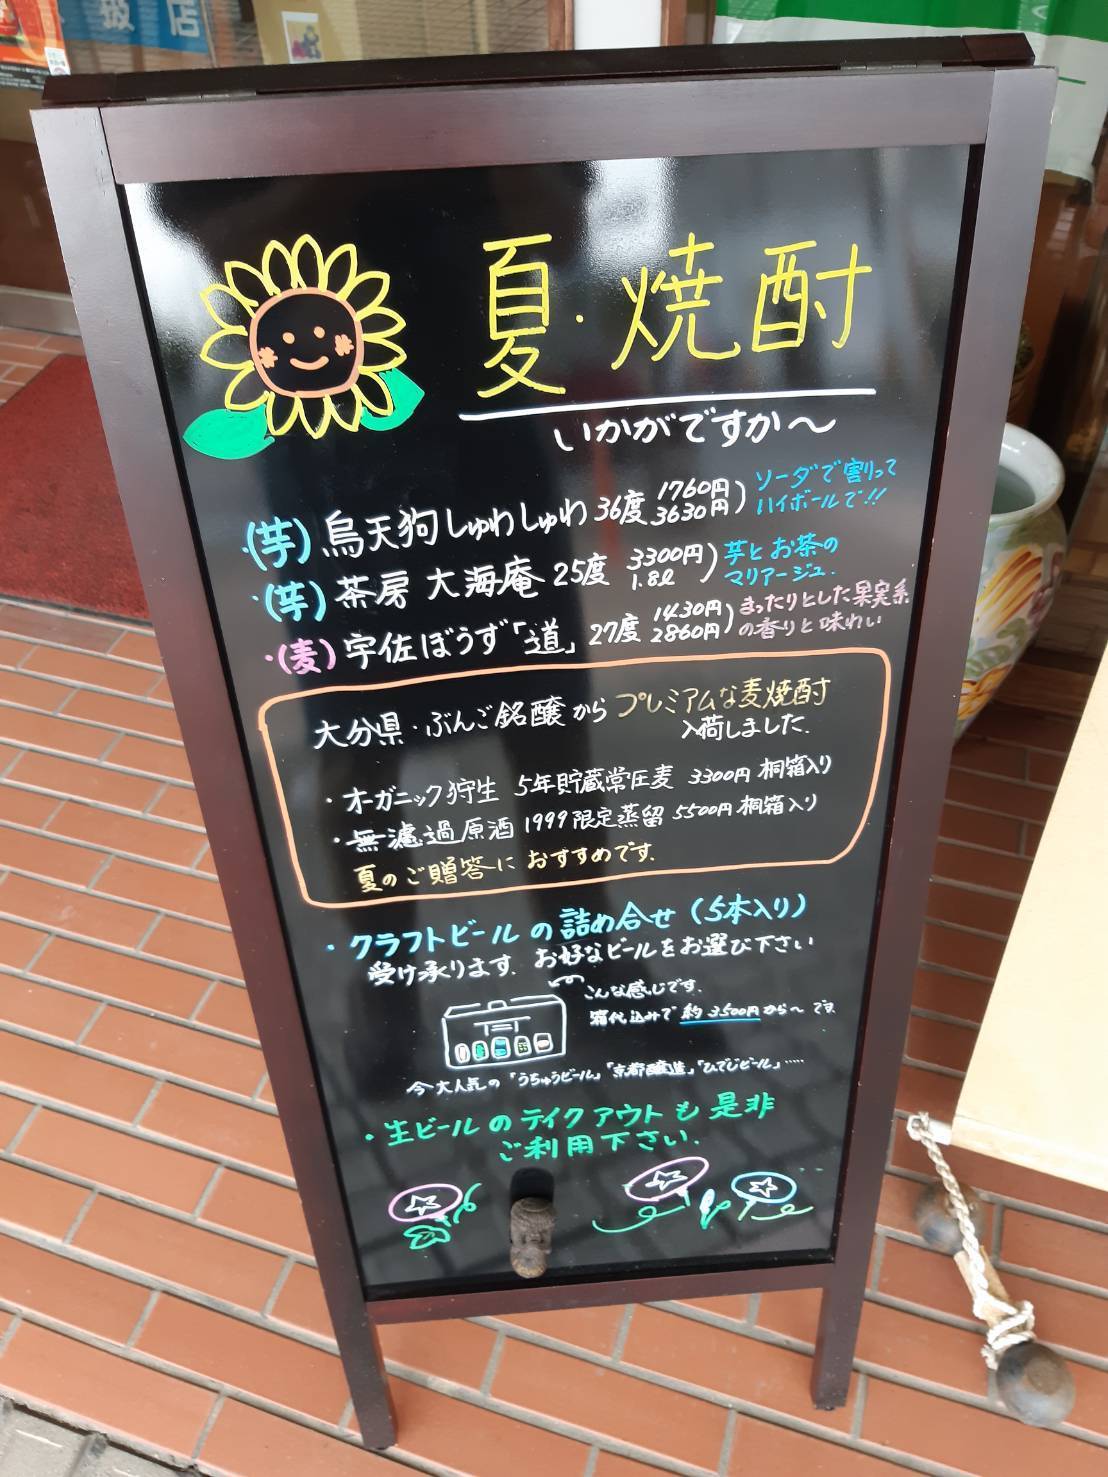 扱店
夏・焼酎
いかがですか〜
・(芋) 烏天狗しゅわしゅわ 36度 1760円 3630円) ソーダで割って
ハイボールで!!
・(芋) 茶房 大海庵 25度 3300円 1.8ℓ) 芋とお茶の
マリアージュ.
・(麦) 宇佐ぼうず「道」 27度 1430円 2860円) まったりとした果実系
の香りと味わい
大分県・ぶんご銘醸から プレミアムな麦焼酎
入荷しました.
・オーガニック狩生 5年貯蔵常圧麦 3300円 桐箱入り
・無濾過原酒 1999限定蒸留 5500円 桐箱入り
夏のご贈答に おすすめです.
・クラフトビールの詰め合せ (5本入り)
受け承ります. お好なビールをお選び下さい
こんな感じです.
箱代込みで 約3500円から〜です.
今大人気の「うちゅうビール」「京都醸造」「ひでじビール」‥‥‥
・生ビールのテイクアウトも是非
ご利用下さい.